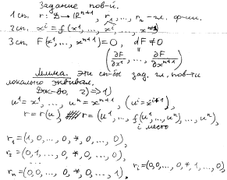 Задание пов-й.
1 сп. r: D → ℝⁿ⁺¹, r₁, ..., rₙ - л. н.
2 сп. xⁱ = f(x¹, ..., xⁿ⁺¹)
3 сп. F(x¹, ..., xⁿ⁺¹) = 0, dF ≠ 0
(∂F/∂x¹, ..., ∂F/∂xⁿ⁺¹)
Лемма. Эти сп-бы зад. пов-ти
локально эквивал.
Док-во. 2) ⇒ 1)
u¹ = x¹, ..., uⁿ = xⁿ⁺¹,
r = r(u), r = (u¹, ..., f(u¹, ..., uⁿ), ..., uⁿ),
i место
r₁ = (1, 0, ..., 0, *, 0, ..., 0),
r₂ = (0, 1, ..., 0, *, 0, ..., 0),
rₙ = (0, 0, ..., 0, *, 0, ..., 1),
rᵢ = (0, 0, ..., 0, *, 1, ..., 0)